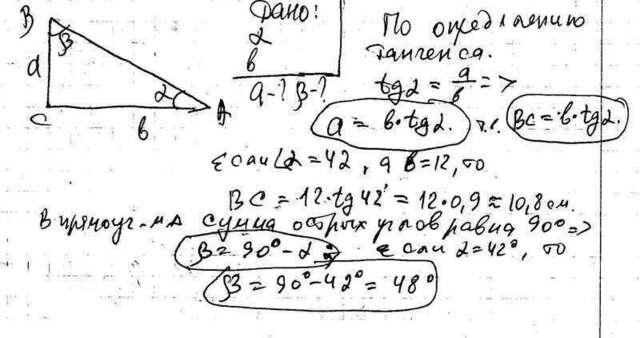 B
β
a
C
α
A
b
Дано:
α
b
a-? β-?
По определению
тангенса.
tgα = a/b =>
a = b·tgα. т.е. BC = b·tgα.
Если ∠α = 42, а b = 12, то
BC = 12·tg42° = 12·0,9 ≈ 10,8 см.
В прямоуг-м Δ сумма острых углов равна 90° =>
β = 90° - α; Если α = 42°, то
β = 90° - 42° = 48°